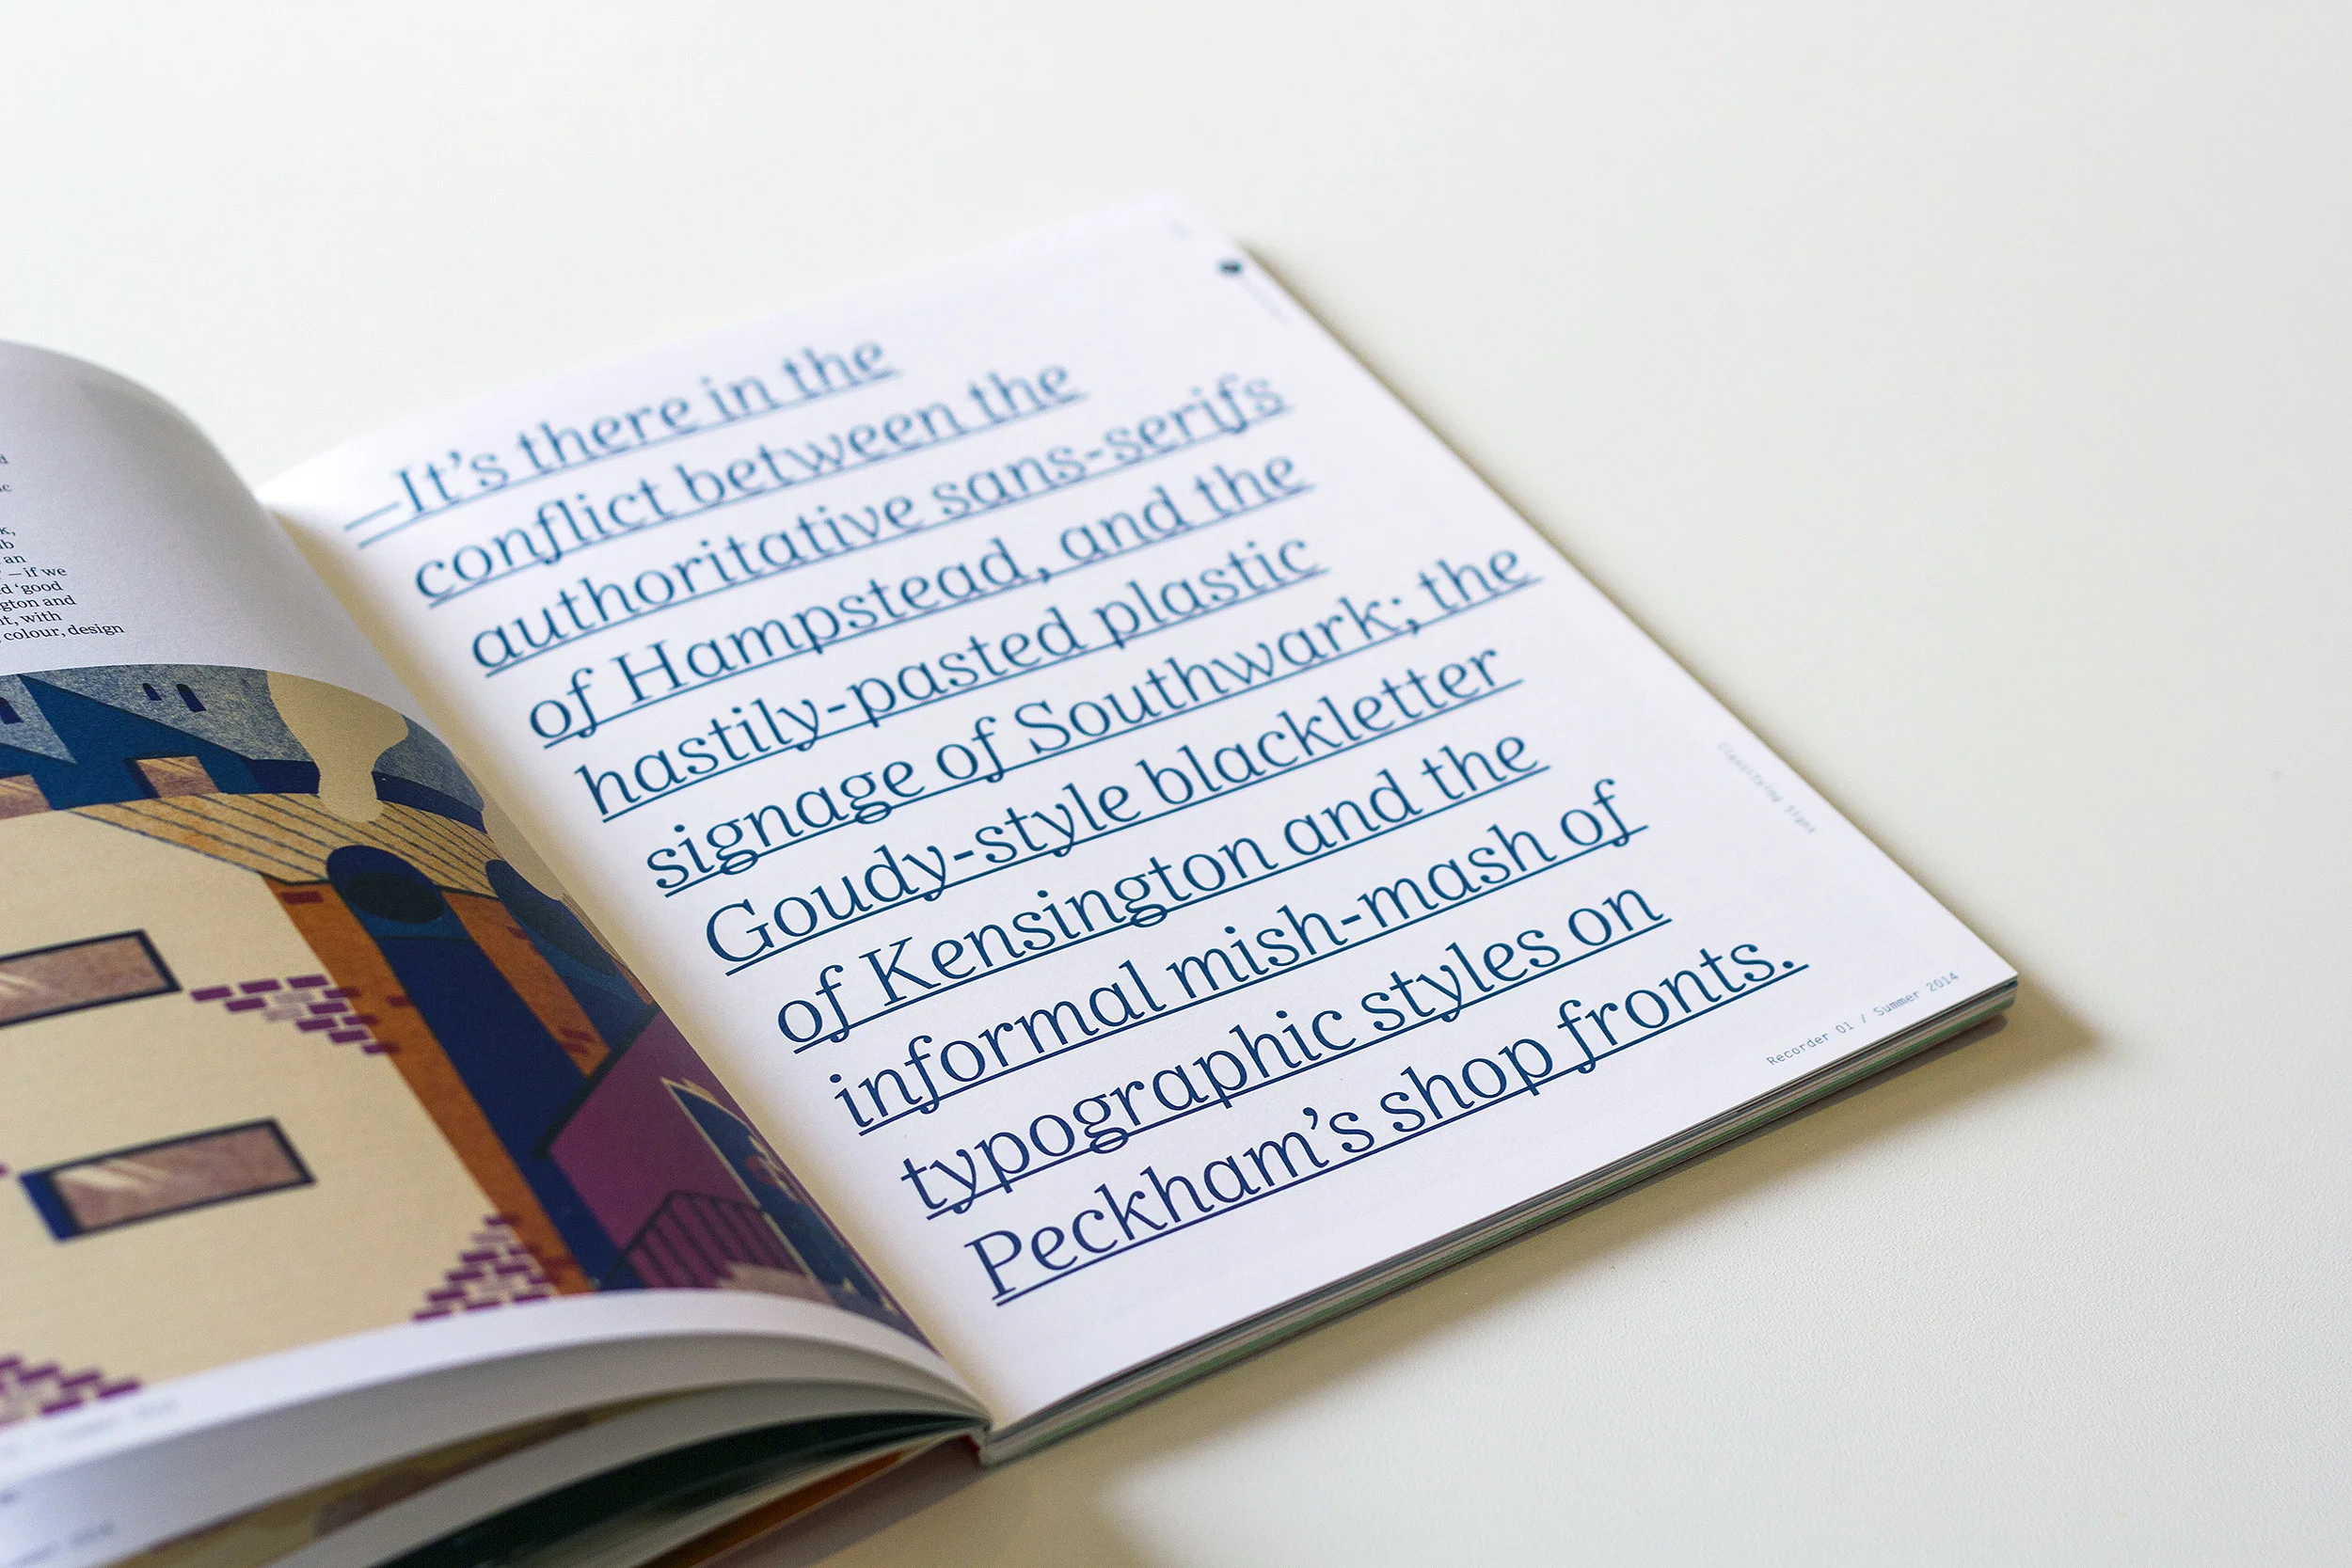 an
– if we
‘good
gton and
it, with
colour, design
—It’s there in the
conflict between the
authoritative sans-serifs
of Hampstead, and the
hastily-pasted plastic
signage of Southwark; the
Goudy-style blackletter
of Kensington and the
informal mish-mash of
typographic styles on
Peckham’s shop fronts.
Classifying Signs
Recorder 01 / Summer 2014